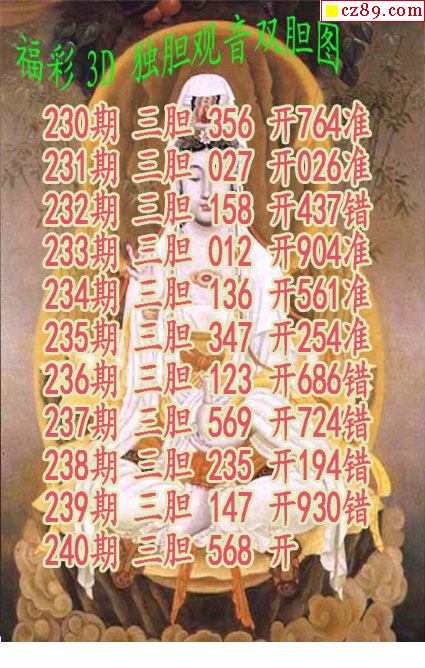 cz89.com
福彩 3D 独胆观音双胆图
230期 三胆 356 开764准
231期 三胆 027 开026准
232期 三胆 158 开437错
233期 三胆 012 开904准
234期 三胆 136 开561准
235期 三胆 347 开254准
236期 三胆 123 开686错
237期 三胆 569 开724错
238期 三胆 235 开194错
239期 三胆 147 开930错
240期 三胆 568 开